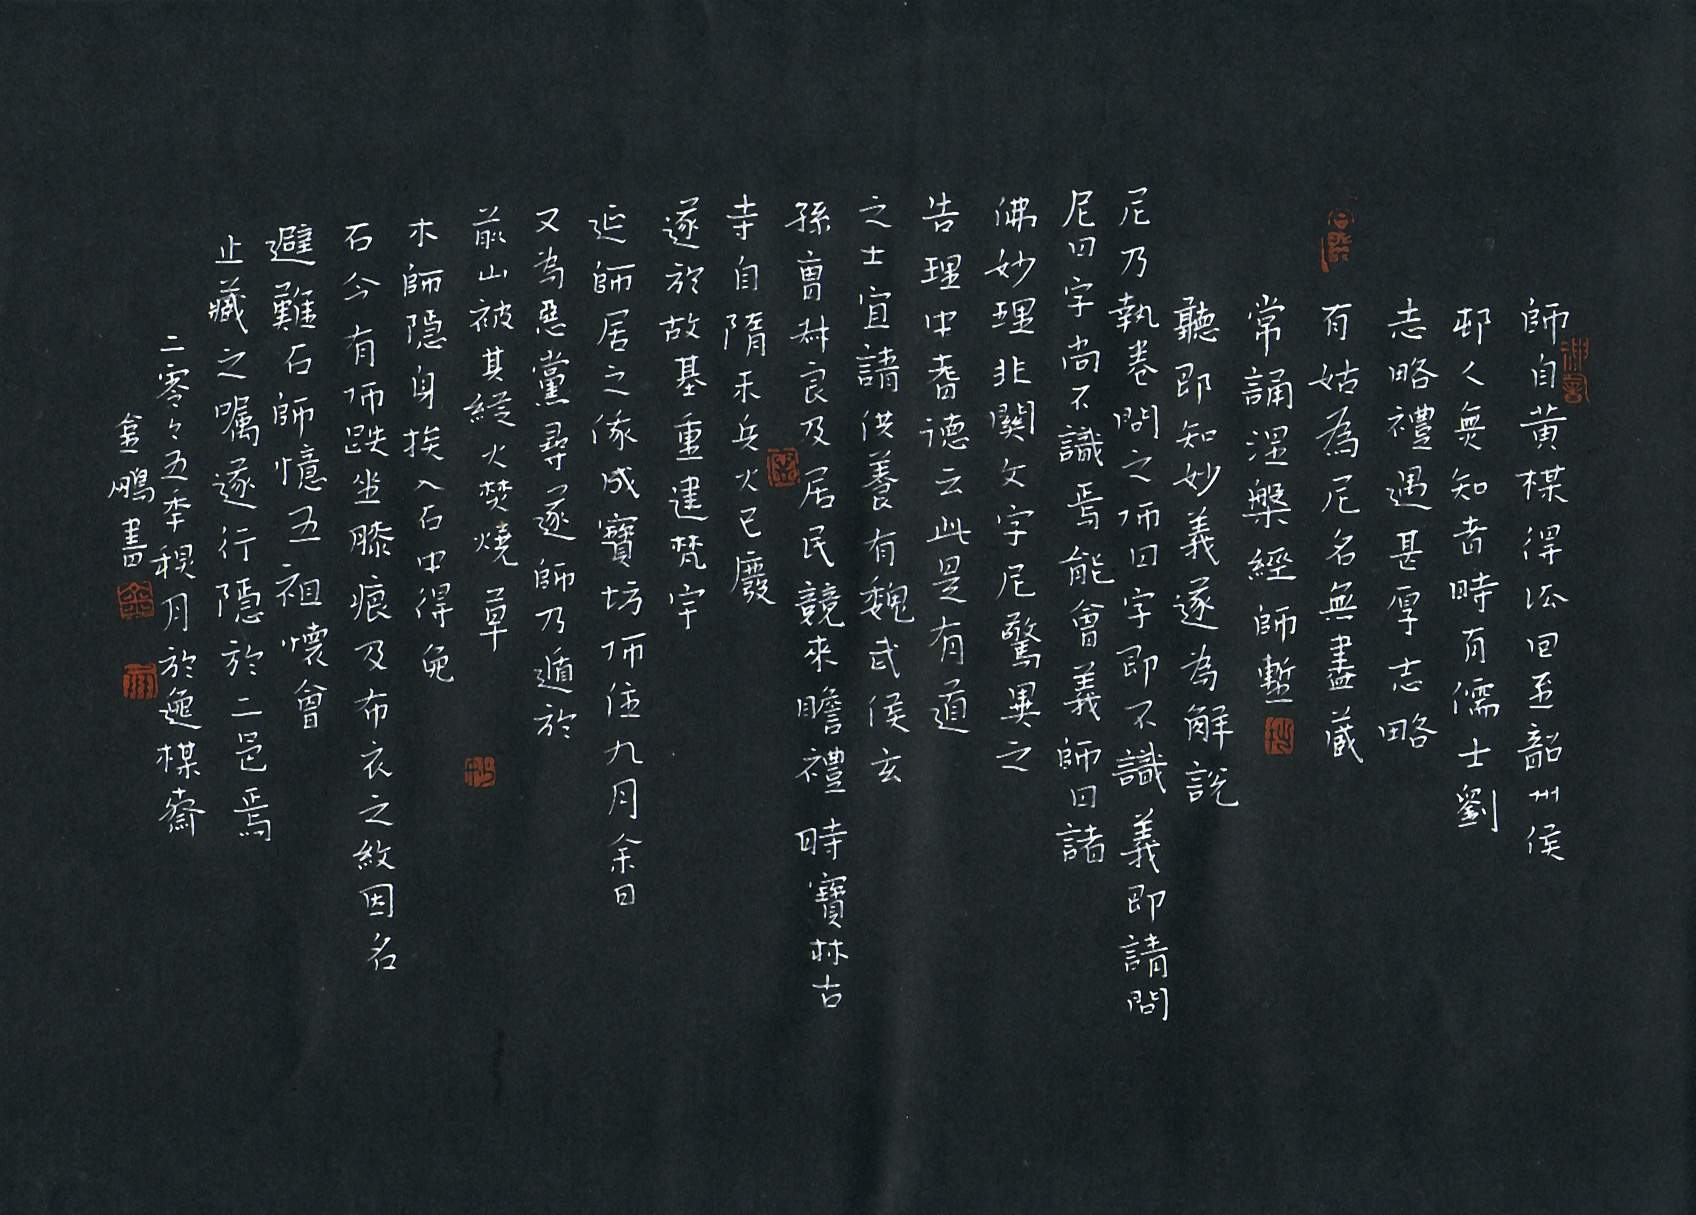 師自黄楳得法回至韶州侯
邨人無知者時有儒士劉
志略禮遇甚厚志略
有姑為尼名無盡蔵
常誦涅槃經師暫
聽即知妙義遂為解説
尼乃執卷問之師曰字即不識義即請問
尼曰字尚不識焉能會義師曰諸
佛妙理非關文字尼驚異之
告理中耆德云此是有道
之士宜請供養有魏武侯玄
孫曺叔良及居民競來瞻禮時寶林古
寺自隋末兵火已廢
遂於故基重建梵宇
延師居之俄成寶坊師住九月余日
又為惡黨尋逐師乃遁於
前山被其縱火焚燒草
木師隠身挨入石中得免
石今有師趺坐膝痕及布衣之紋因名
避難石師憶五祖懷會
止藏之嘱遂行隱於二邑焉
二零々五年穊月於逸楳齋
金鵬書